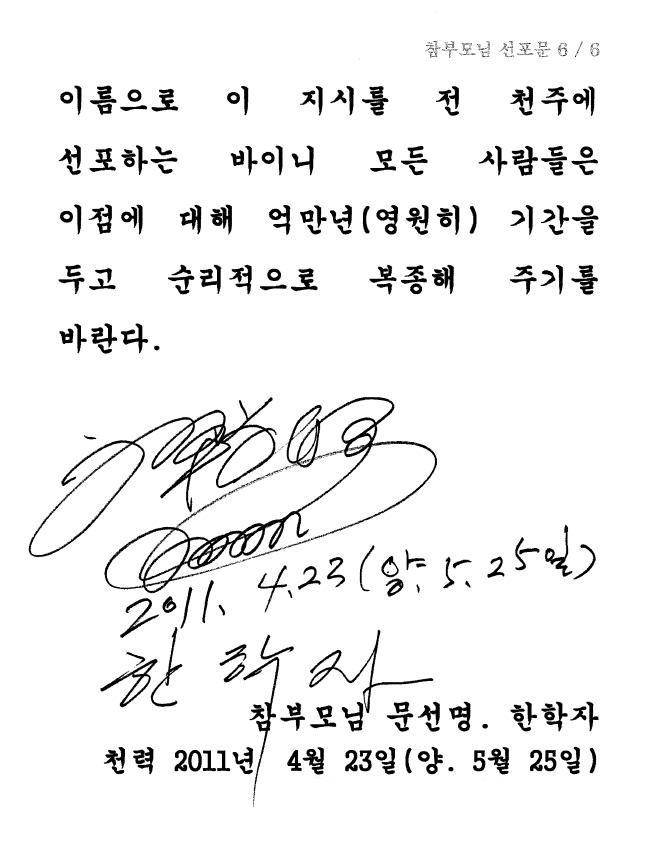 참부모님 선포문 6 / 6
이름으로 이 지시를 전 천주에
선포하는 바이니 모든 사람들은
이점에 대해 억만년(영원히) 기간을
두고 순리적으로 복종해 주기를
바란다.
2011. 4.23(양. 5. 25일)
한학자
참부모님 문선명. 한학자
천력 2011년 4월 23일(양. 5월 25일)